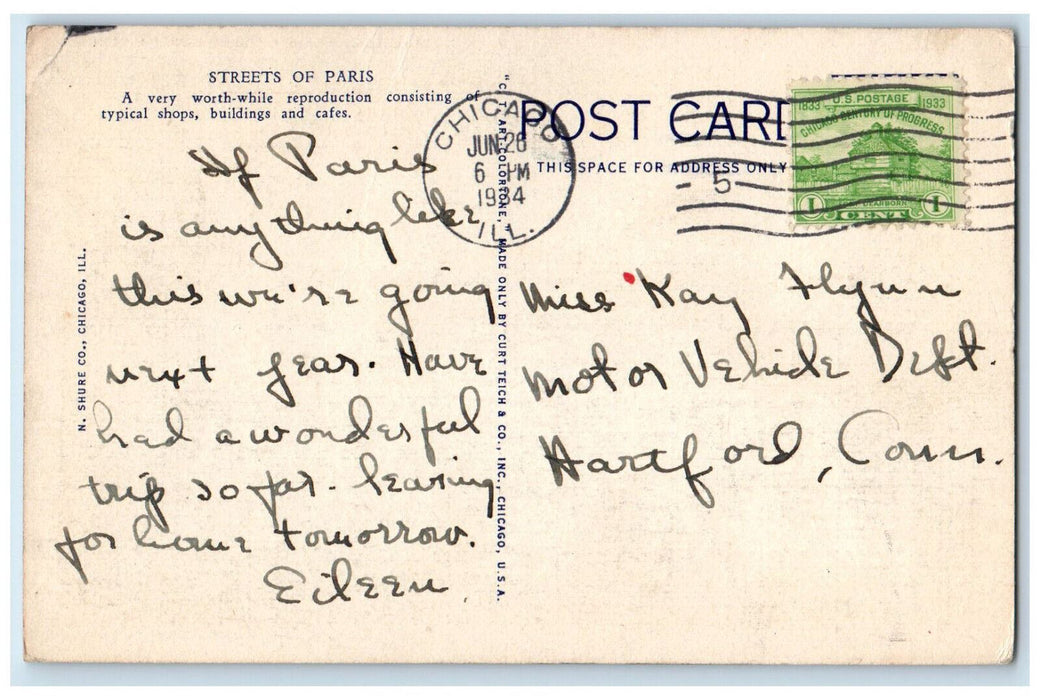 STREETS OF PARIS
A very worth-while reproduction consisting of
typical shops, buildings and cafes.
If Paris
is anything like
this we're going
next year. Have
had a wonderful
trip so far. Leaving
for home tomorrow.
Eileen
N. SHURE CO., CHICAGO, ILL.
"C. T. ART-COLORTONE," MADE ONLY BY CURT TEICH & CO., INC., CHICAGO, U.S.A.
POST CARD
THIS SPACE FOR ADDRESS ONLY
CHICAGO
JUN 26
6 PM
1934
ILL.
5
1833 U.S. POSTAGE 1933
CHICAGO CENTURY OF PROGRESS
1 CENT 1
Miss Kay Flynn
Motor Vehicle Dept.
Hartford, Conn.